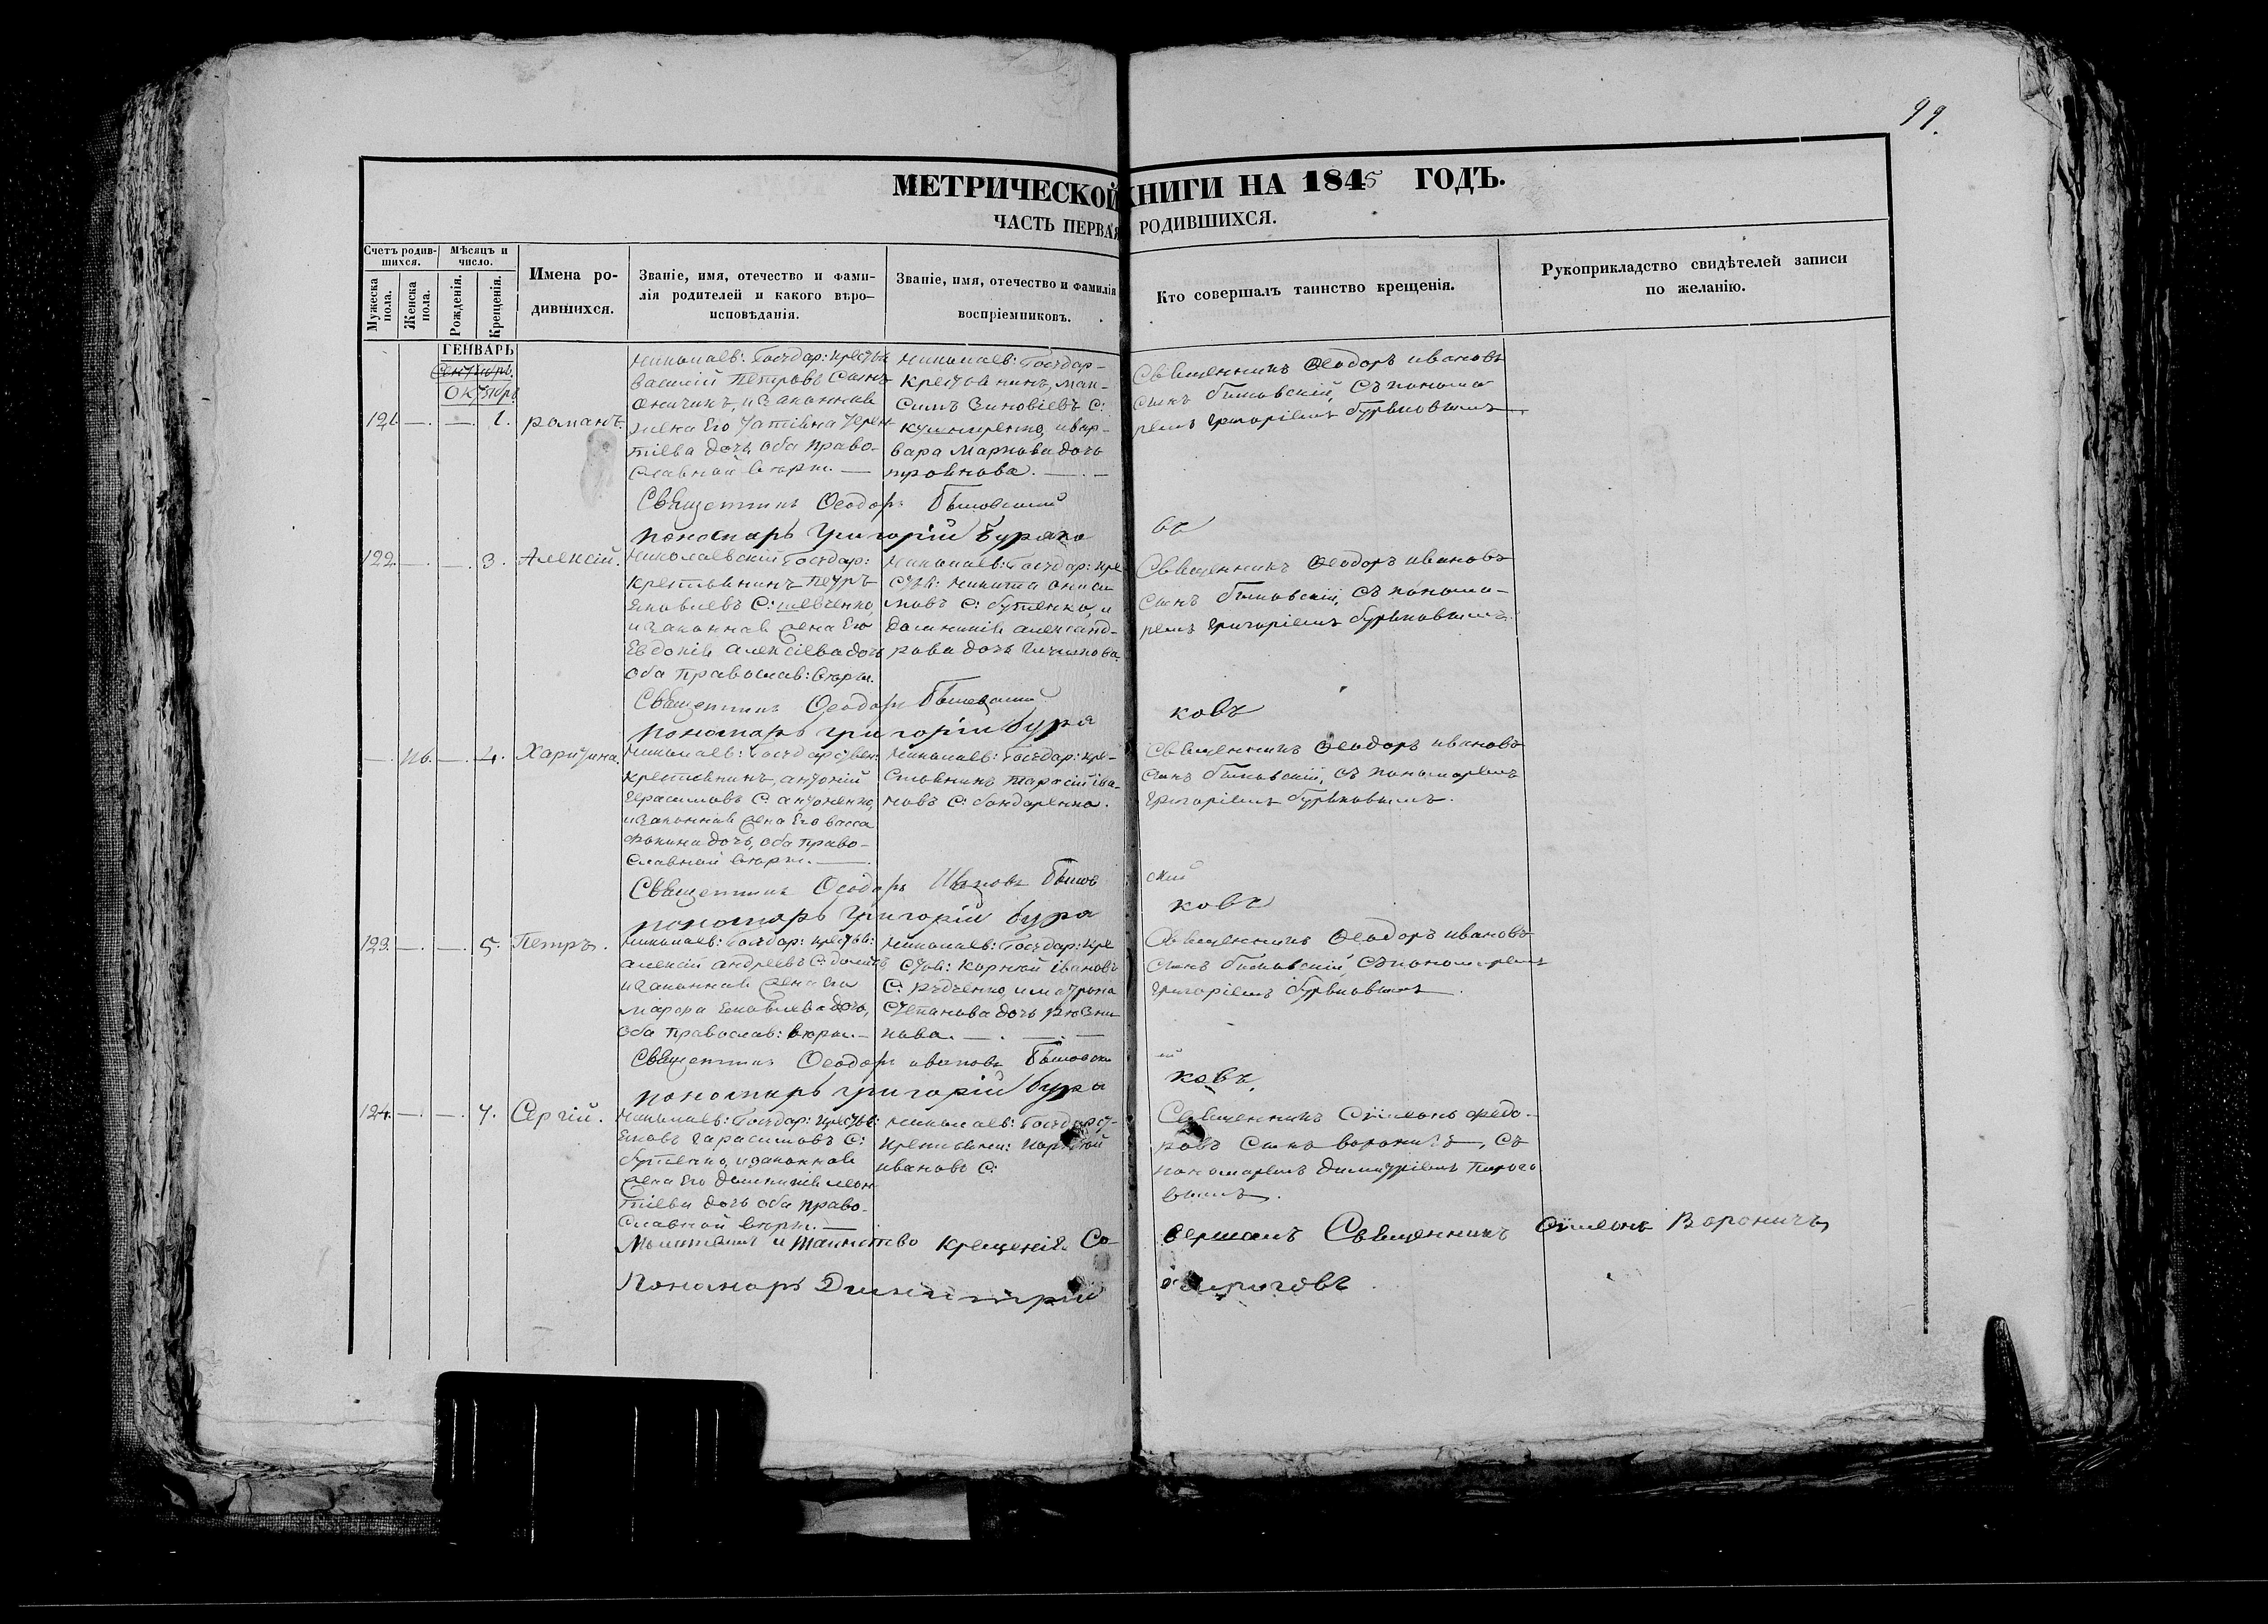 99.
МЕТРИЧЕСКОЙ КНИГИ НА 1845 ГОДЪ.
ЧАСТЬ ПЕРВАЯ РОДИВШИХСЯ.
Счетъ родившихся.
Мужеска пола.
Женска пола.
Мѣсяцъ и число.
Рожденія.
Крещенія.
Имена родившихся.
Званіе, имя, отечество и фамилія родителей и какого вѣроисповѣданія.
Званіе, имя, отечество и фамилія воспріемниковъ.
Кто совершалъ таинство крещенія.
Рукоприкладство свидѣтелей записи по желанію.
ГЕНВАРЬ
Октябрь
121. — — 1. романъ.
Николаев: Государ: крестья
Василій Петровъ Сынъ
и законная
жена Его
тіева дочь оба право-
славной вѣры. —
Николаев: Государ-
крестьянинъ, Мак-
симъ Зиновіевъ С:
Кушниренко, и вар-
вара Маркова дочь
Священникъ Ѳеодоръ ивановъ
сынъ бышовскій, съ понома
ремъ Григоріемъ буряковымъ
Священникъ Ѳеодоръ Бышовскій
пономарь Григорій буряко
въ
122. — — 3. Алексій.
Николаевскій Государ:
крестьянинъ Петръ
Яковлевъ С: шевченко,
и законная жена Его
Евдокія Алексіева дочь
оба православ: вѣры.
Николаев: Государ: кре
стья: Никита Ониси
мовъ С: бутенко, и
Домникія Александ-
рова дочь
Священникъ Ѳеодоръ ивановъ
сынъ бышовскій, съ понома-
ремъ Григоріемъ буряковымъ.
Священникъ Ѳеодоръ Бышовскій
пономарь григорій буря
ковъ
— 116. — 4. Харитина.
Николаев: Государствен:
крестьянинъ, антоній
Герасимовъ С: антоненко,
и законная жена Его васса
Фокина дочь, оба право-
славной вѣры. —
Николаев: Государ: кре-
стьянинъ Тарасій ива-
новъ С: бондаренко.
Священникъ Ѳеодоръ ивановъ
сынъ бышовскій, съ пономаремъ
Григоріемъ буряковымъ.
Священникъ Ѳеодоръ Ивановъ Бышов
скій
пономарь Григорій буря
ковъ
123. — — 5. Петръ.
Николаев: Государ: крестья:
алексій андреевъ С:
и законная жена Его
Яковлева дочь,
оба православ: вѣры. —
Николаев: Государ: кре
стья: Корній ивановъ
С: и матрона
Степанова дочь
Священникъ Ѳеодоръ ивановъ
сынъ бышовскій, съ пономаремъ
Григоріемъ буряковымъ.
Священникъ Ѳеодоръ ивановъ Бышовск
ій
пономарь григорій буря
ковъ.
124. — — 7. Сергій.
Николаев: Государ: крестья:
Яковъ Гарасимовъ С:
бутенко, и законная
жена Его Домникія Леон
тіева дочь оба право-
славной вѣры. —
Николаев: Государст-
крестьянин: Корній
ивановъ С:
Священникъ Симеонъ Федо-
ровъ Сынъ вороничъ, съ
пономаремъ Димитріемъ Пирого
вымъ.
Молитвилъ и таинство крещенія Со
вершалъ Священникъ Симеонъ Вороничъ
Пономарь Димитрій
Пироговъ